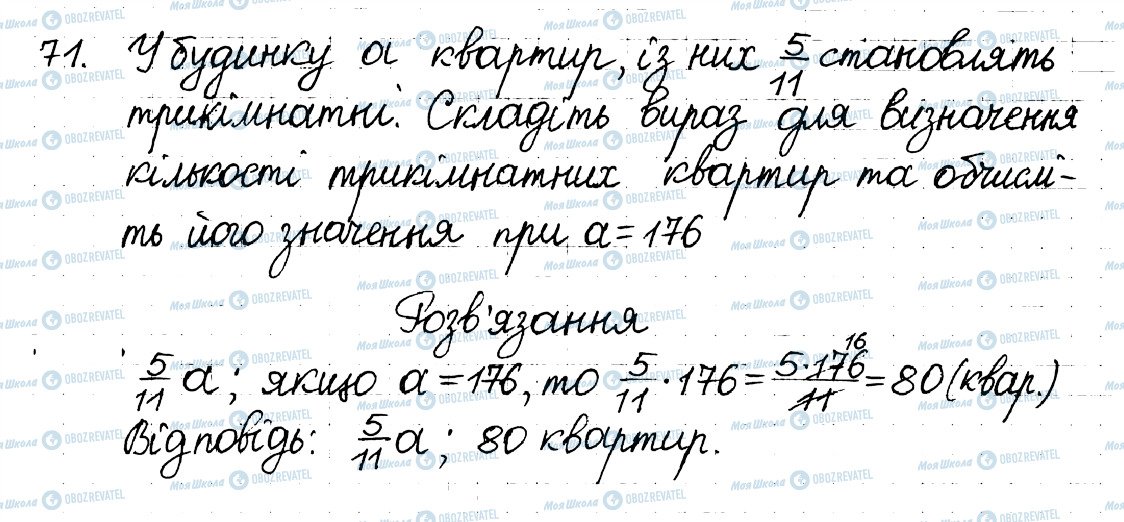 71. У будинку a квартир, із них 5/11 становлять
трикімнатні. Складіть вираз для визначення
кількості трикімнатних квартир та обчислі-
ть його значення при a = 176
Розв'язання
5/11 a ; якщо a = 176, то 5/11 · 176 = 5·176/11 16 = 80 (квар.)
Відповідь: 5/11 a ; 80 квартир.
Моя Школа OBOZREVATEL